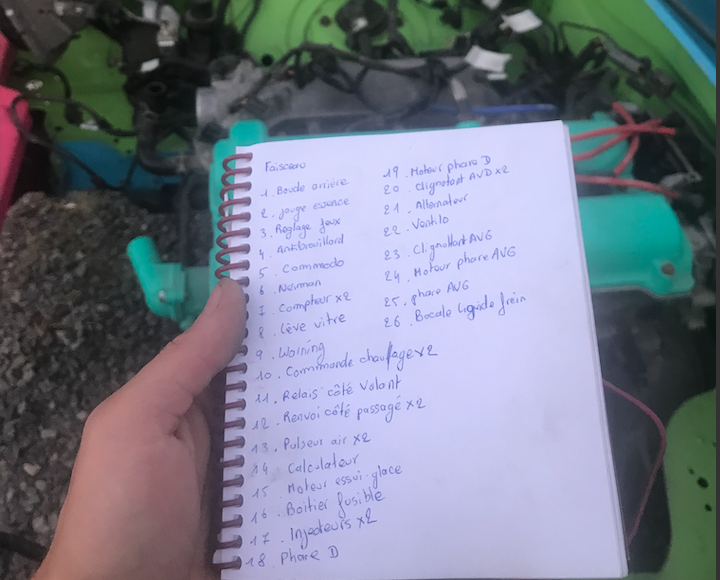 Faisceau
1. Boude arrière
2. jauge essence
3. Reglage feux
4. Antibrouillard
5. Commodo
6. Neiman
7. Compteur x2
8. Lève vitre
9. Warning
10. Commande chauffage x2
11. Relais côté Volant
12. Renvoi côté passagé x2
13. Pulseur air x2
14. Calculateur
15. Moteur essui-glace
16. Boitier fusible
17. Injecteurs x2
18. Phare D
19. Moteur phare D
20. Clignotant AVD x2
21. Alternateur
22. Ventilo
23. Clignottant AVG
24. Moteur phare AVG
25. phare AVG
26. Bocale liquide frein